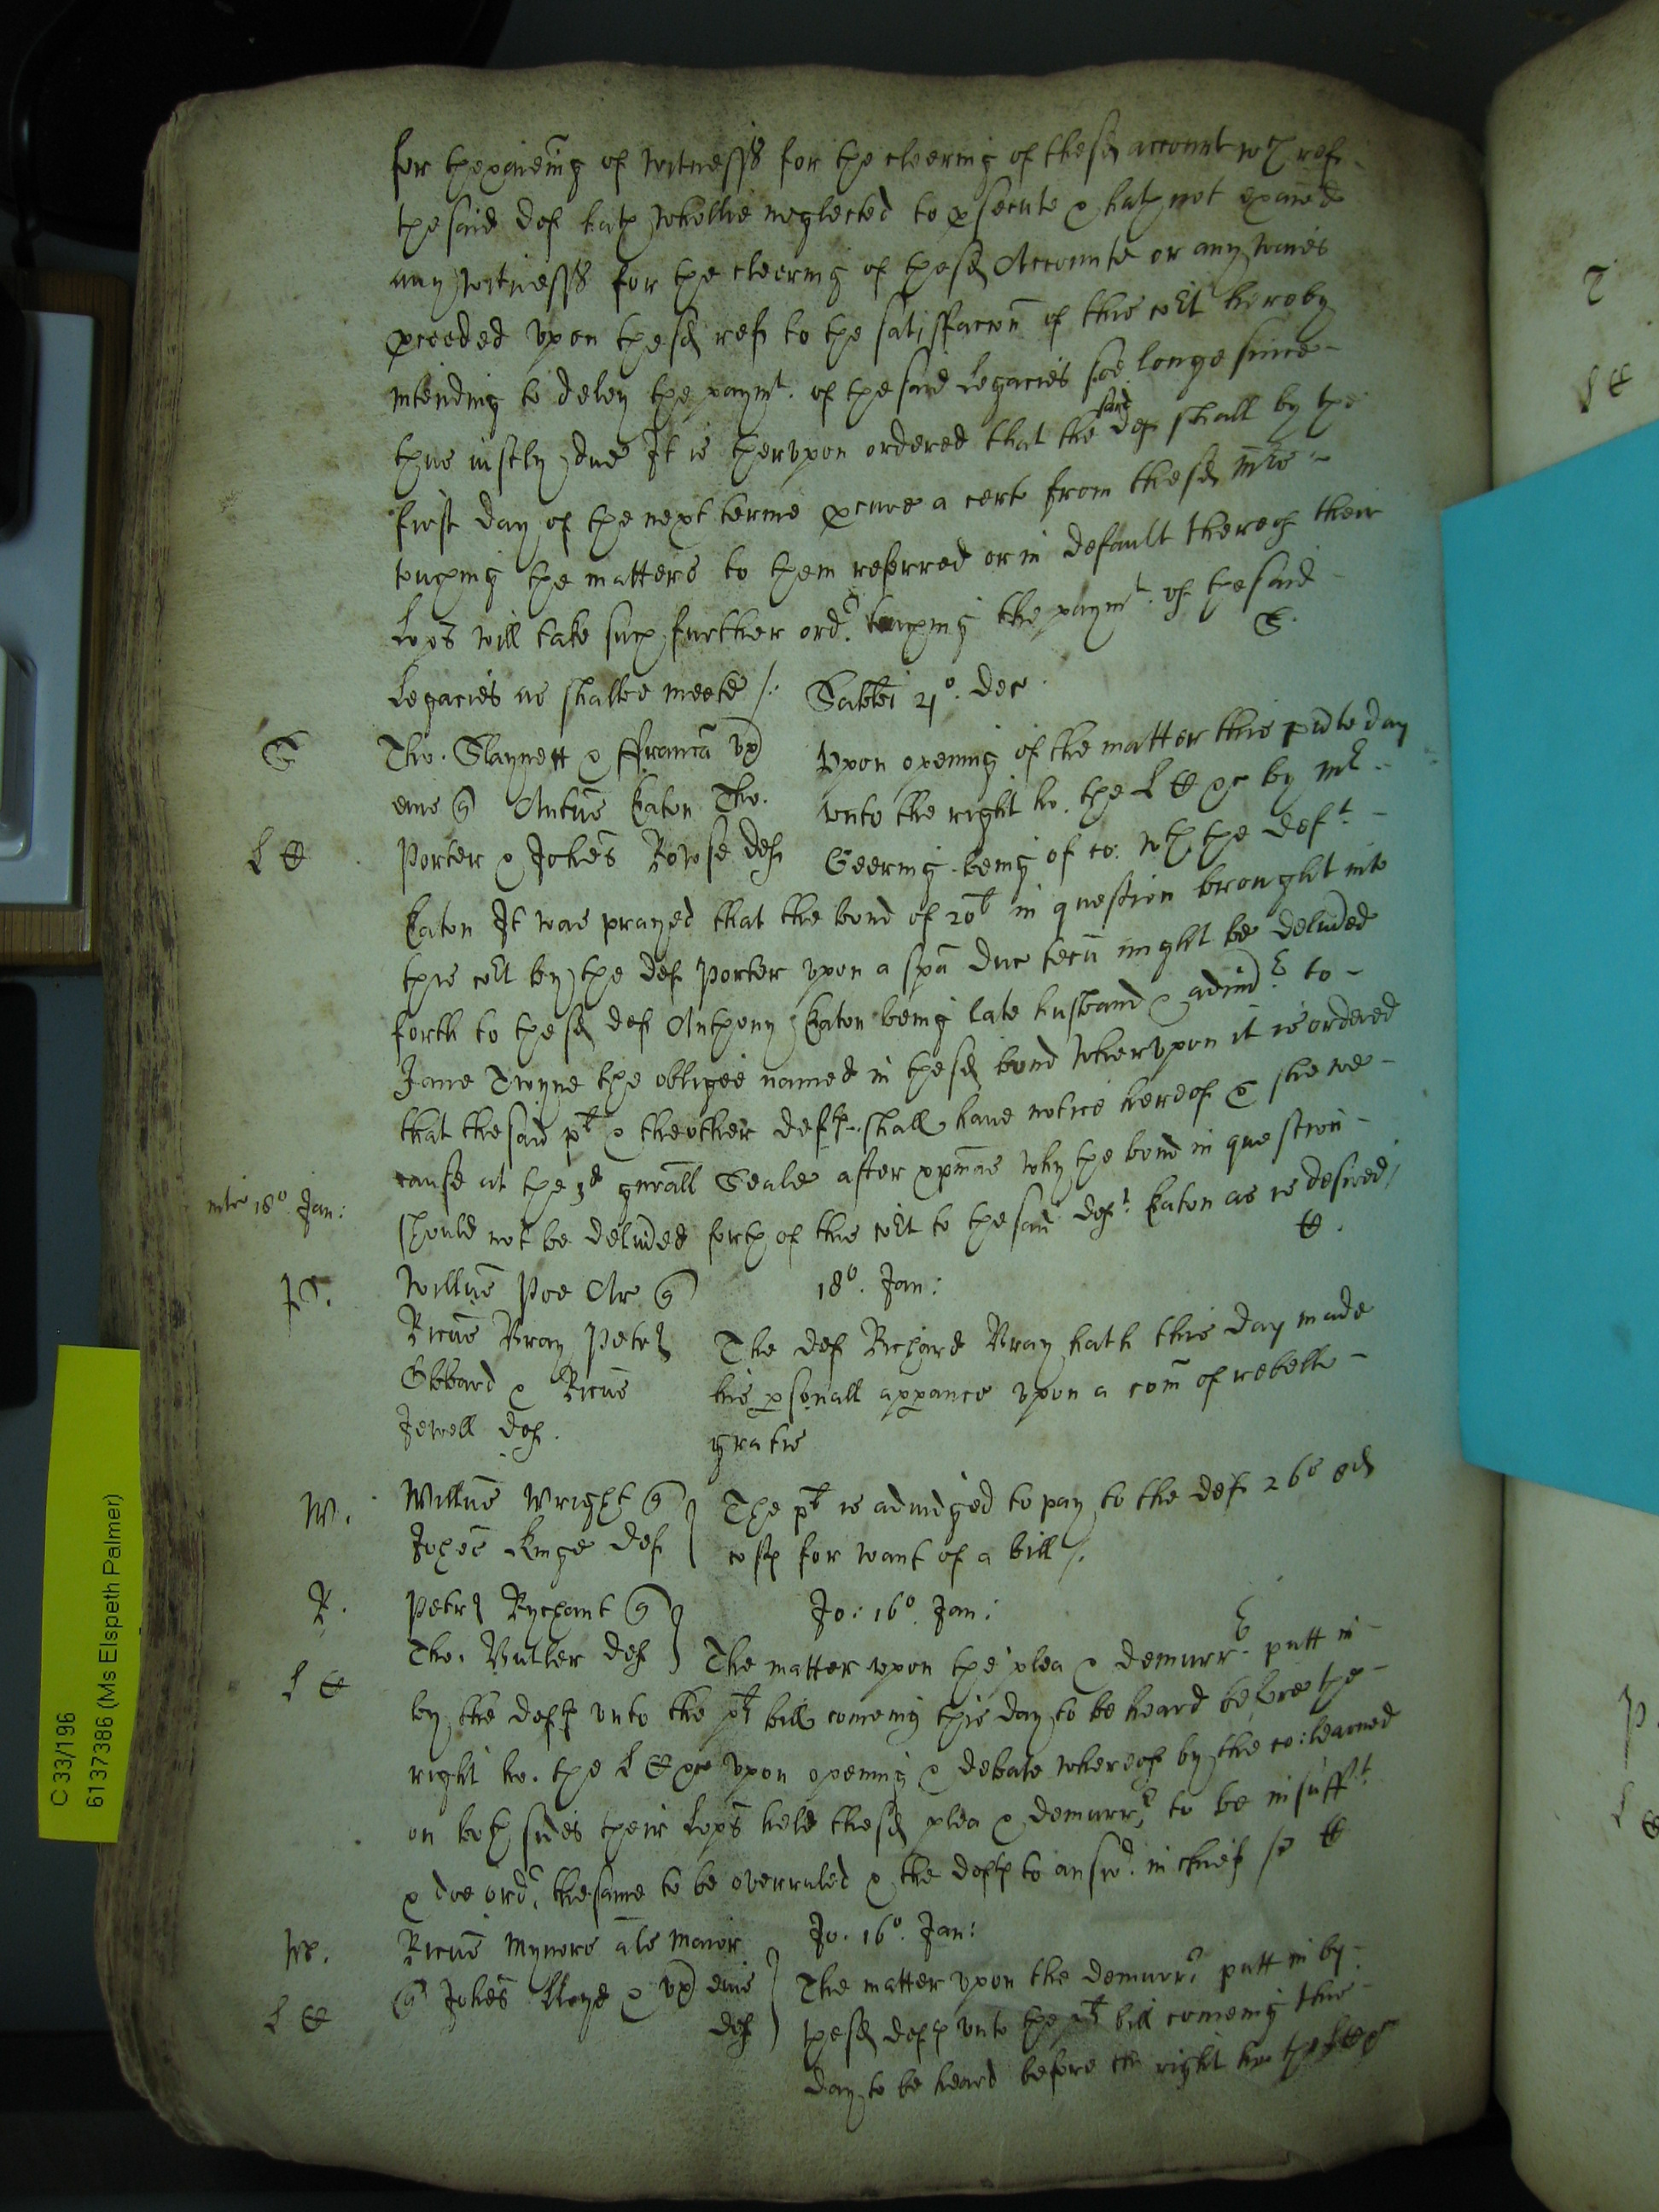 for thexaiem̃g of witnesses for the cleering of thesd account wch refr
the said def hath whollie neglected to psecute & hath not exaied
any witnesses for the cleering of the sd Accounte or any waies
pceeded vpon the sd refr to the satisfaccon of this cort hereby
intending to deley the paymt. of the said Legacies soe longe since
thus iustly due It is thervpon ordered that the said def shall by the
first day of the next terme pcure a certe from the sd mrs
touching the matters to them referred or in default thereof their
Lopps will take such further ordr. touching the paymt. of the said
Legacies as shalbe meete /. G.
Sabbti 21o. Dec
G Tho. Slaynett & ffrancã vx)
eius q Antũs Eaton Tho.
L E Porter & Johes Rowse def
Vpon opening of the matter this pñte day
vnto the right ho. the L E &c by mr
Geering being of co. wth the deft.
Eaton It was prayed that the bond of 20l in question brought into
this cort by the def Porter vpon a spã duc tecũ might be deliũed
forth to the sd def Anthony Eaton being late husband & admr. to
Jane Twyne the obligee named in the sd bond Whervpon it is ordered
that the said plt & theother defts shall haue notice hereof & shewe
cause at the 3d gneall Seale after xpmas why the bond in question
intr 18o. Jan:
should not be deliũed forth of this cort to the said deft. Eaton as is desired /
E.
P. Willus Poe Ar q
Ricus Bray Petr
Ebbard & Ricus
Jewell def.
18o. Jan:
The def Richard Bray hath this day made
his psonall appance vpon a com of rebelln
gratis
W. Willus Wright q
Johes Kinge def
The plt is adiudged to pay to the def 26s 8d
costs for want of a bill /.
R. Petr Rychaut q
Tho. Butler def
L E
Jo: 16o. Jan:
The matter vpon the plea & demurrr putt in
by the defts vnto the plts bill comeing this day to be heard before the
right ho. the L E &c vpon opening & debate whereof by the co: learned
on both sides their Lopps held the sd plea & demurrr. to be insufft.
& doe ordr. thesame to be overruled & the defts to answr. in chief /. E
M. Ricus Mynors als Maior
L E q Johes Lloyd & vx) eius
def
Jo. 16o. Jan:
The matter vpon the demurrr putt in by
the sd defts vnto the plts bill comeing this
day to be heard before the right ho. the L E &c
C 33/196
6137386 (Ms Elspeth Palmer)